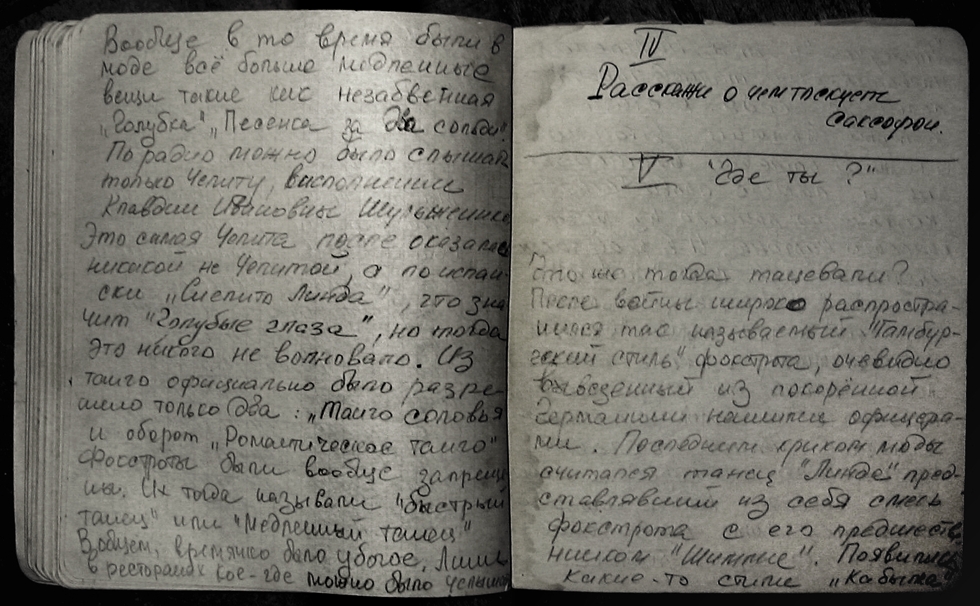 Вообще в то время были в
моде всё больше медленные
вещи такие как незабвенная
„Голубка" „Песенка за два сольди"
По радио можно было слышать
только Челиту, висполнении
Клавдии Ивановны Шульженко
Это самая Челита после оказалась
никакой не Челитой, а поиспан-
ски „Сиелито Линда", что зна
чит "Голубые глаза", но тогда
это никого не волновало. Из
танго официально было разре-
шено только два: „Танго соловья
и оборот „Романтическое танго"
Фокстроты были вообще запреще
ны. Их тогда называли "быстрый
танец" или "Медленный танец"
Вобщем, времячко было убогое. Лишь
в ресторанах кое-где можно было услыша
IV
Расскажи о чем тоскует
саксофон.
V "Где ты?"
Что же тогда тацевали?
После войны широко распростра-
нился так называемый "Гамбур-
гский стиль" фокстрота, очевидно
вывезенный из покорённой
Германии нашими офицера-
ми. Последним криком моды
считался танец "Линда" пред-
ставлявший из себя смесь
фокстрота с его предшеств
ником "Шимми". Появились
какие-то стили